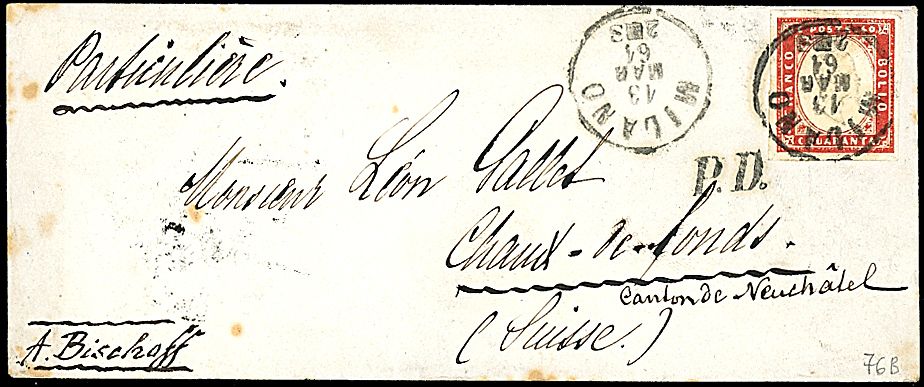 Particulière.
MILANO
13
MAR
61
2 S
FRANCO POSTALE BOLLO
C. QUARANTA
MILANO
13
MAR
61
2 S
P.D.
Monsieur Léon Gallet
Chaux-de-fonds.
Canton de Neuchâtel
(Suisse.)
A. Bischoff
76B